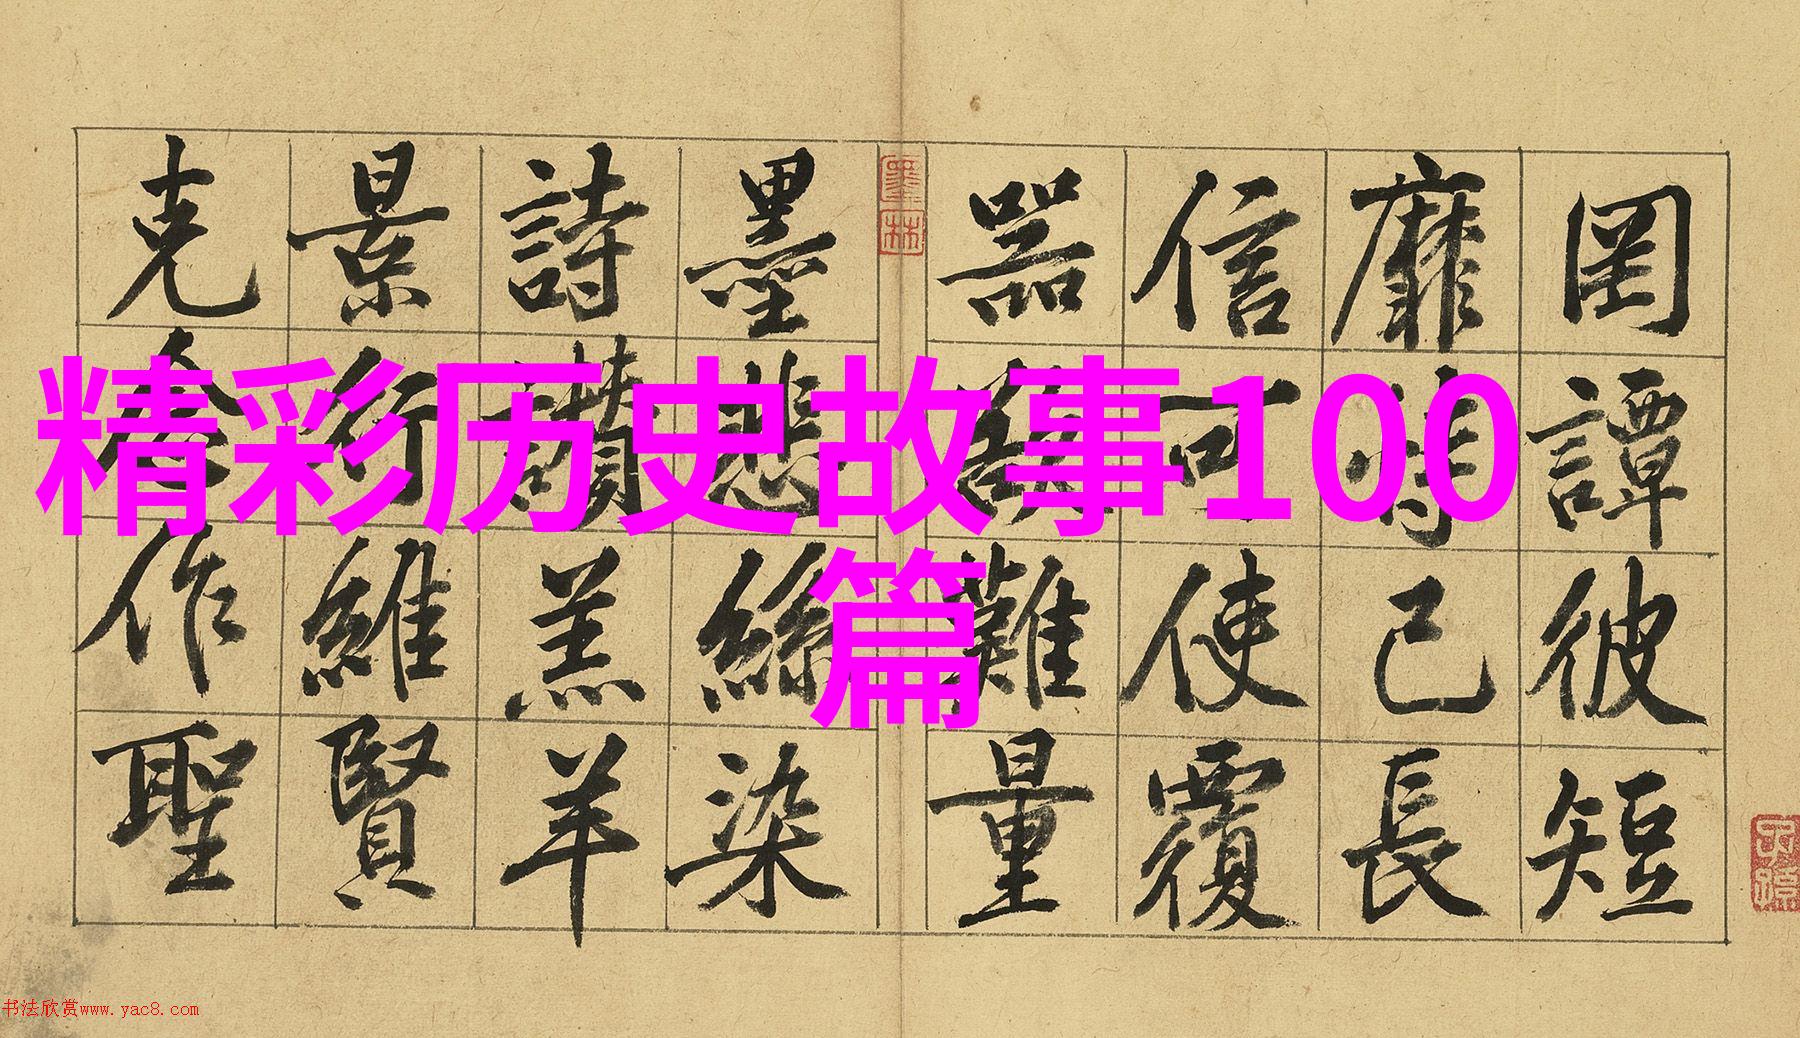 精彩历史故事100
篇
罔譚彼短
靡恃己長
信可使覆
器欲難量
墨林
墨悲絲染
詩讚羔羊
景行維賢
克念作聖
子孫
书法欣赏www.yac8.com